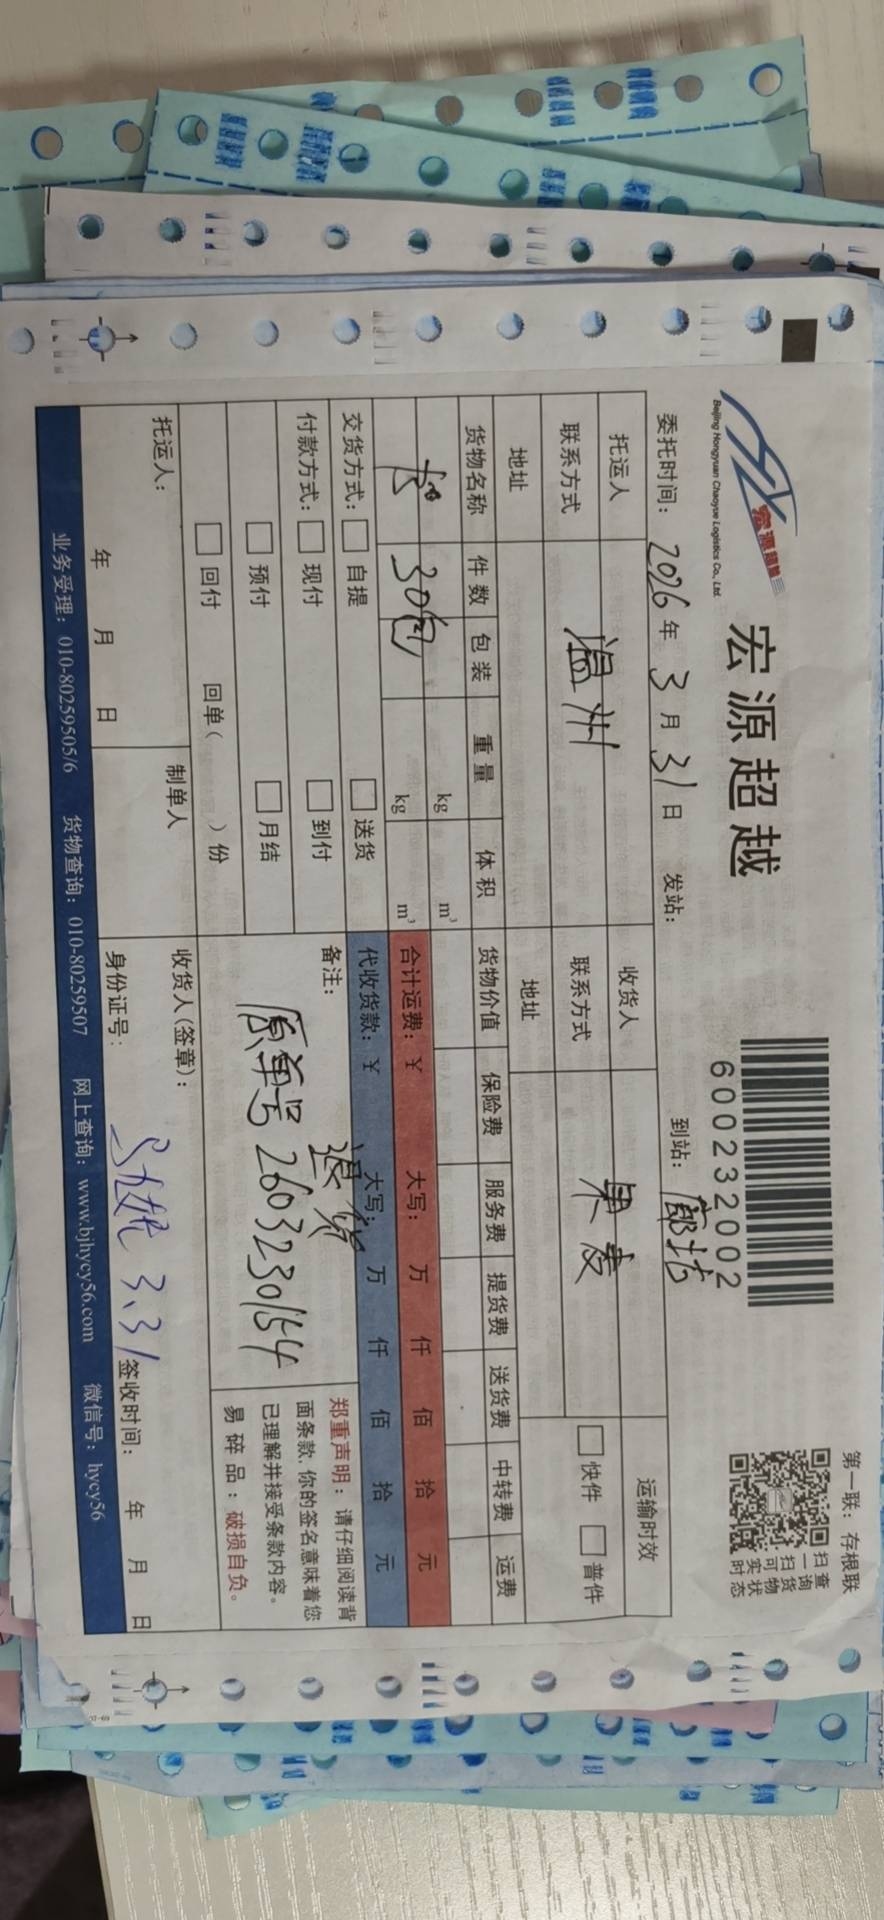 第一联：存根联
宏源超越
Beijing Hongyuan Chaoyue Logistics Co., Ltd.
宏源超越
600232002
扫一扫查询货物实时状态
委托时间：2026年3月31日 发站： 到站：廊坊
托运人 收货人 运输时效
联系方式 温州 联系方式 快件 普件
地址 地址
货物名称 件数 包装 重量 体积 货物价值 保险费 服务费 提货费 送货费 中转费 运费
kg m³
30包 kg m³
合计运费：￥ 大写： 万 仟 佰 拾 元
代收货款：￥ 大写： 万 仟 佰 拾 元
交货方式： 自提 送货
付款方式： 现付 到付
预付 月结
回付 回单（ ）份
备注： 退货
原单号 2603230154
郑重声明：请仔细阅读背面条款，你的签名意味着您已理解并接受条款内容。
易碎品：破损自负。
托运人：
年 月 日
制单人
收货人(签章)：
身份证号： 3.31 签收时间： 年 月 日
业务受理：010-80259505/6 货物查询：010-80259507 网上查询：www.bjhycy56.com 微信号：hycy56